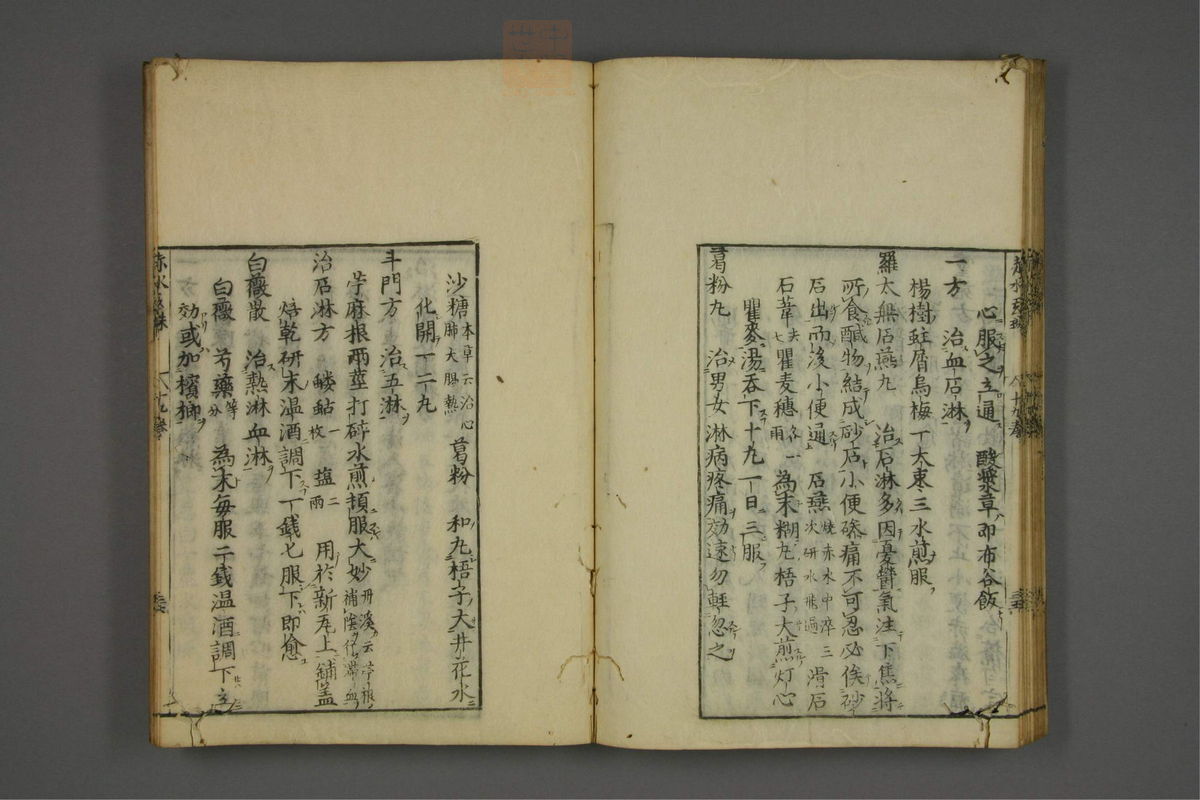 心服之立通　酸漿草即布谷飯
一方　治血石淋
楊樹蛀屑烏梅一大棗三水煎服
羅太無石燕丸　治石淋多因憂鬱氣注下焦將
所食醎物結成砂石小便磣痛不可忍必俟砂
石出而後小便通　石燕燒赤水中淬三次研水飛過滑石
石葦去七瞿麦穗各一兩為末糊丸梧子大煎灯心
瞿麥湯吞下十丸一日三服
葛粉丸　治男女淋病疼痛効速勿輕忽之
沙糖本草云治心肺大腸熱葛粉　和丸梧子大井花水
化開一二丸
斗門方　治五淋
苧麻根兩莖打碎水煎頓服大妙丹溪云苧根補陰行滯血
治石淋方　一枚　塩二兩　用於新瓦上鋪盖
焙乾研末温酒調下一錢七服下即愈
白薇散　治熱淋血淋
白薇　芍藥等分　為末每服二錢温酒調下立
効或加檳榔